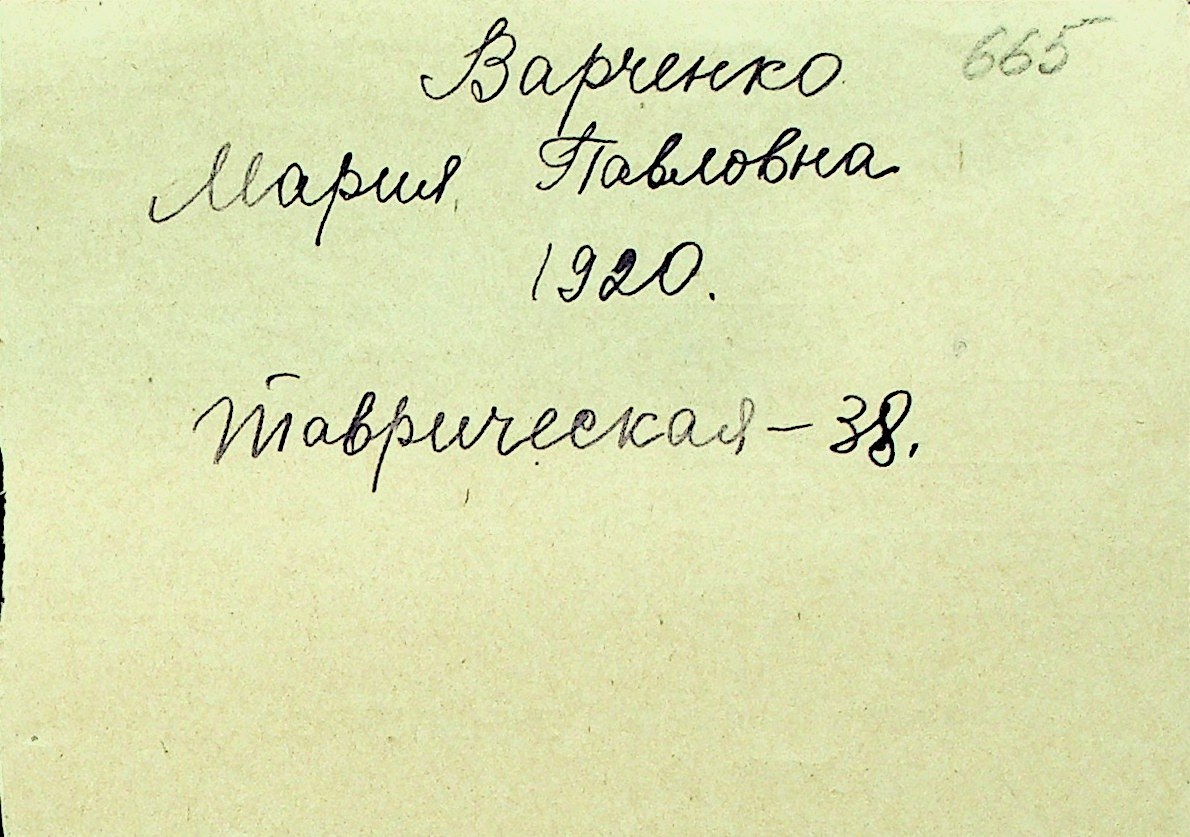 Варченко 665
Мария Павловна
1920.
Таврическая – 38.